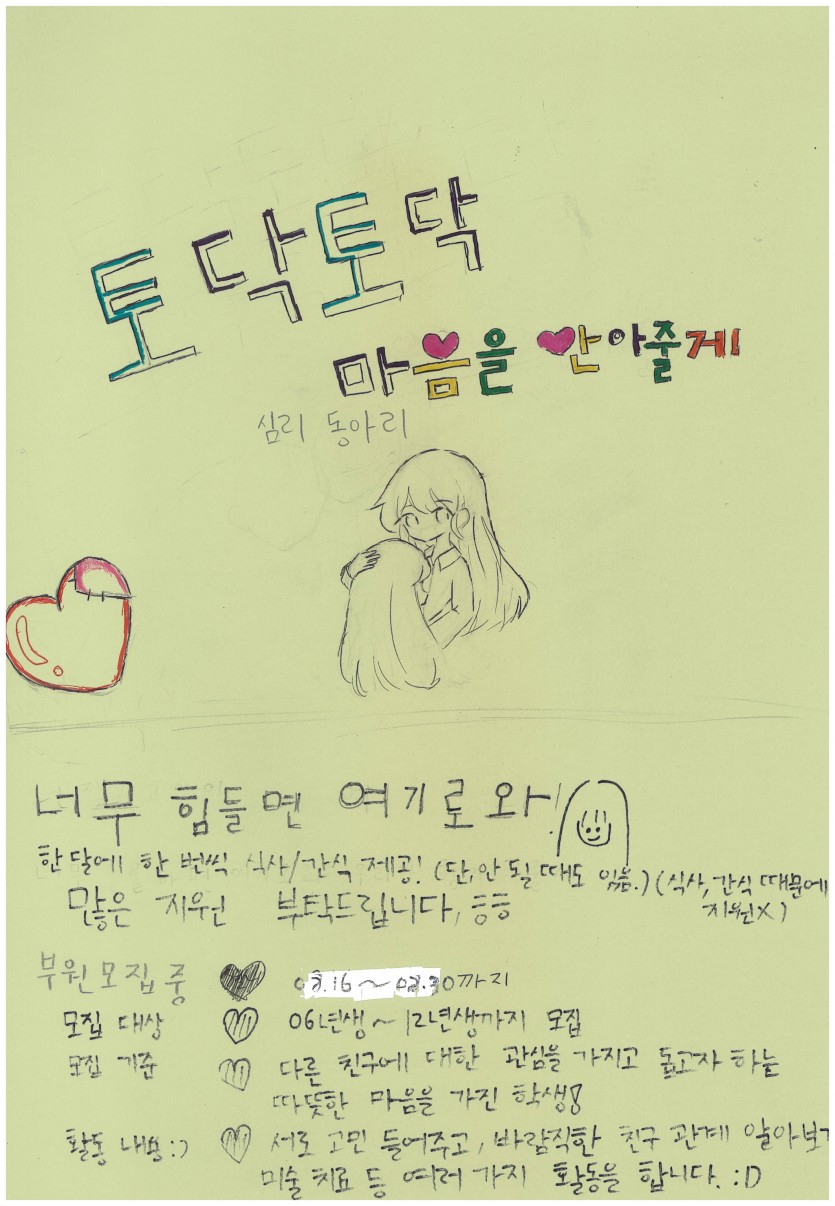 토닥토닥
마음을 안아줄게
심리 동아리
너무 힘들면 여기로 와!
한달에 한 번씩 식사/간식 제공! (단, 안 될 때도 있음.) (식사, 간식 때문에
지원X)
많은 지원 부탁드립니다, ㅎㅎ
부원모집 중 08.16~08.30까지
모집 대상 06년생~12년생까지 모집
모집 기준 다른 친구에 대한 관심을 가지고 돕고자 하는
따뜻한 마음을 가진 학생!
활동 내용:) 서로 고민 들어주고, 바람직한 친구 관계 알아보기
미술 치료 등 여러 가지 활동을 합니다. :D